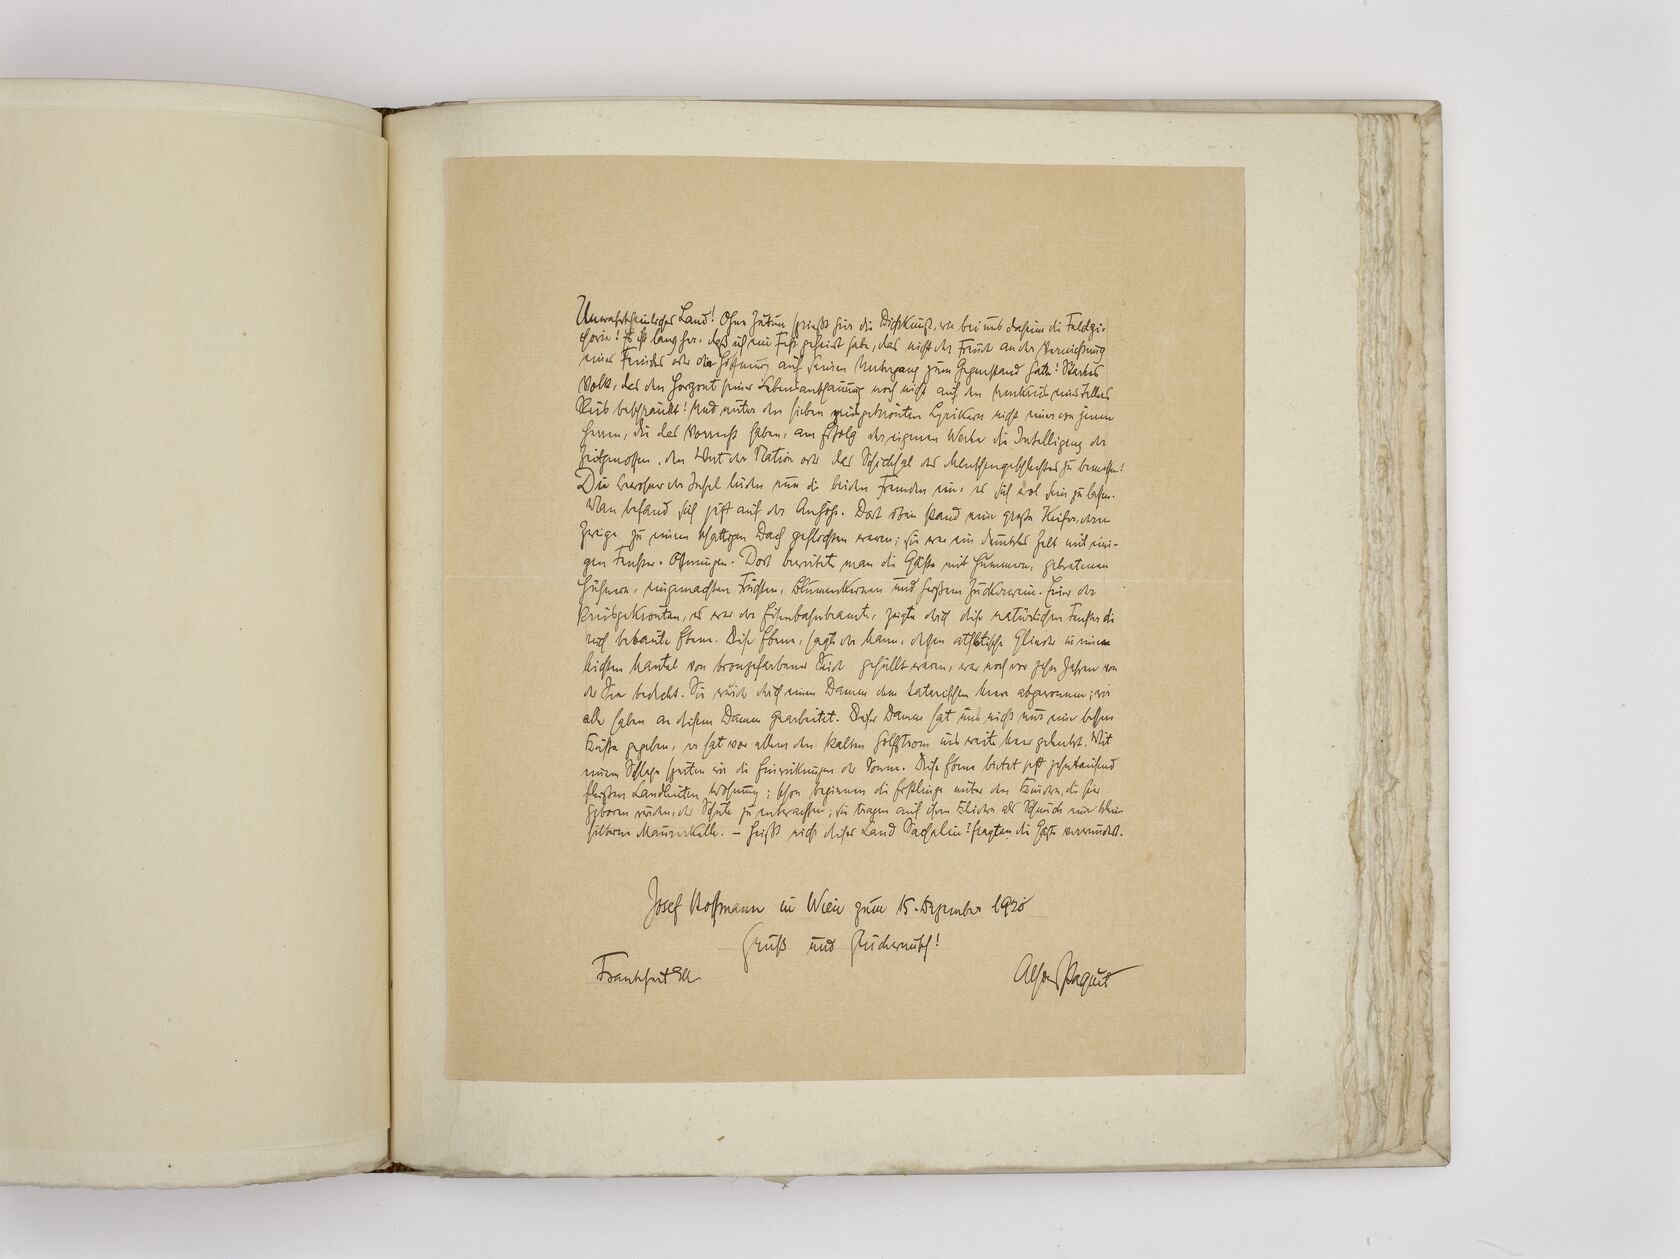 Unwahrscheinliches Land! Ohne Zutun sprießt hier die Dichtkunst, wie bei uns daheim die Feldzi-
chorie! Es ist lang her, daß ich ein Fest gefeiert habe, das nicht die Freude an der Vernichtung
eines Feindes oder die Hoffnung auf seinen Untergang zum Gegenstand hatte! Starkes
Volk, das den Horizont seiner Lebensanschauung noch nicht auf den Umkreis eines Tellers
Reis beschränkt! Und unter den sieben preisgekrönten Lyrikern nicht einer von jenen
Herren, die das Vorrecht haben, am Erfolg der eigenen Werke die Intelligenz der
Zeitgenossen, den Wert der Nation oder das Schicksal des Menschengeschlechtes zu bemessen!
Die Bewohner der Insel luden nun die beiden Fremden ein, es sich wol sein zu lassen.
Man befand sich jetzt auf der Anhöhe. Dort oben stand eine große Kiefer, deren
Zweige zu einem schattigen Dach geflochten waren; sie war ein dunkles Zelt mit eini-
gen Fenster-Öffnungen. Dort bewirtete man die Gäste mit Hummern, gebratenen
Hühnern, eingemachten Früchten, Blumenkernen und heißem Zuckerwein. Einer der
Preisgekrönten, es war der Eisenbahnbeamte, zeigte durch diese natürlichen Fenster die
reich bebaute Ebene. Diese Ebene, sagte der Mann, dessen athletische Glieder in einen
leichten Mantel von bronzefarbener Seide gehüllt waren, war noch vor zehn Jahren von
der See bedeckt. Sie wurde durch einen Damm dem tatarischen Meer abgewonnen; wir
alle haben an diesem Damm gearbeitet. Dieser Damm hat uns nicht nur eine bessere
Küste gegeben, er hat vor allem den kalten Golfstrom ins weite Meer gelenkt. Mit
einem Schlage spürten wir die Einwirkungen der Sonne. Diese Ebene bietet jetzt zehntausend
fleißigen Landleuten Wohnung; schon beginnen die Erstlinge unter den Kindern, die hier
geboren wurden, der Schule zu entwachsen; sie tragen auf ihren Kleidern als Schmuck eine kleine
silberne Maurerkelle. – Heißt nicht dieses Land Sachalin? fragten die Gäste verwundert.
Josef Hoffmann in Wien zum 15. Dezember 1920
Gruß und Glückwunsch!
Frankfurt a/M
Alfons Paquet